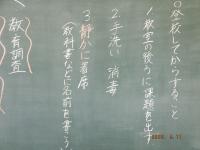 ○登校してからすること
1 教室の後ろに課題を出す
2. 手洗い 消毒
3. 静かに着席
(教科書などに名前を書こう)
教育調査